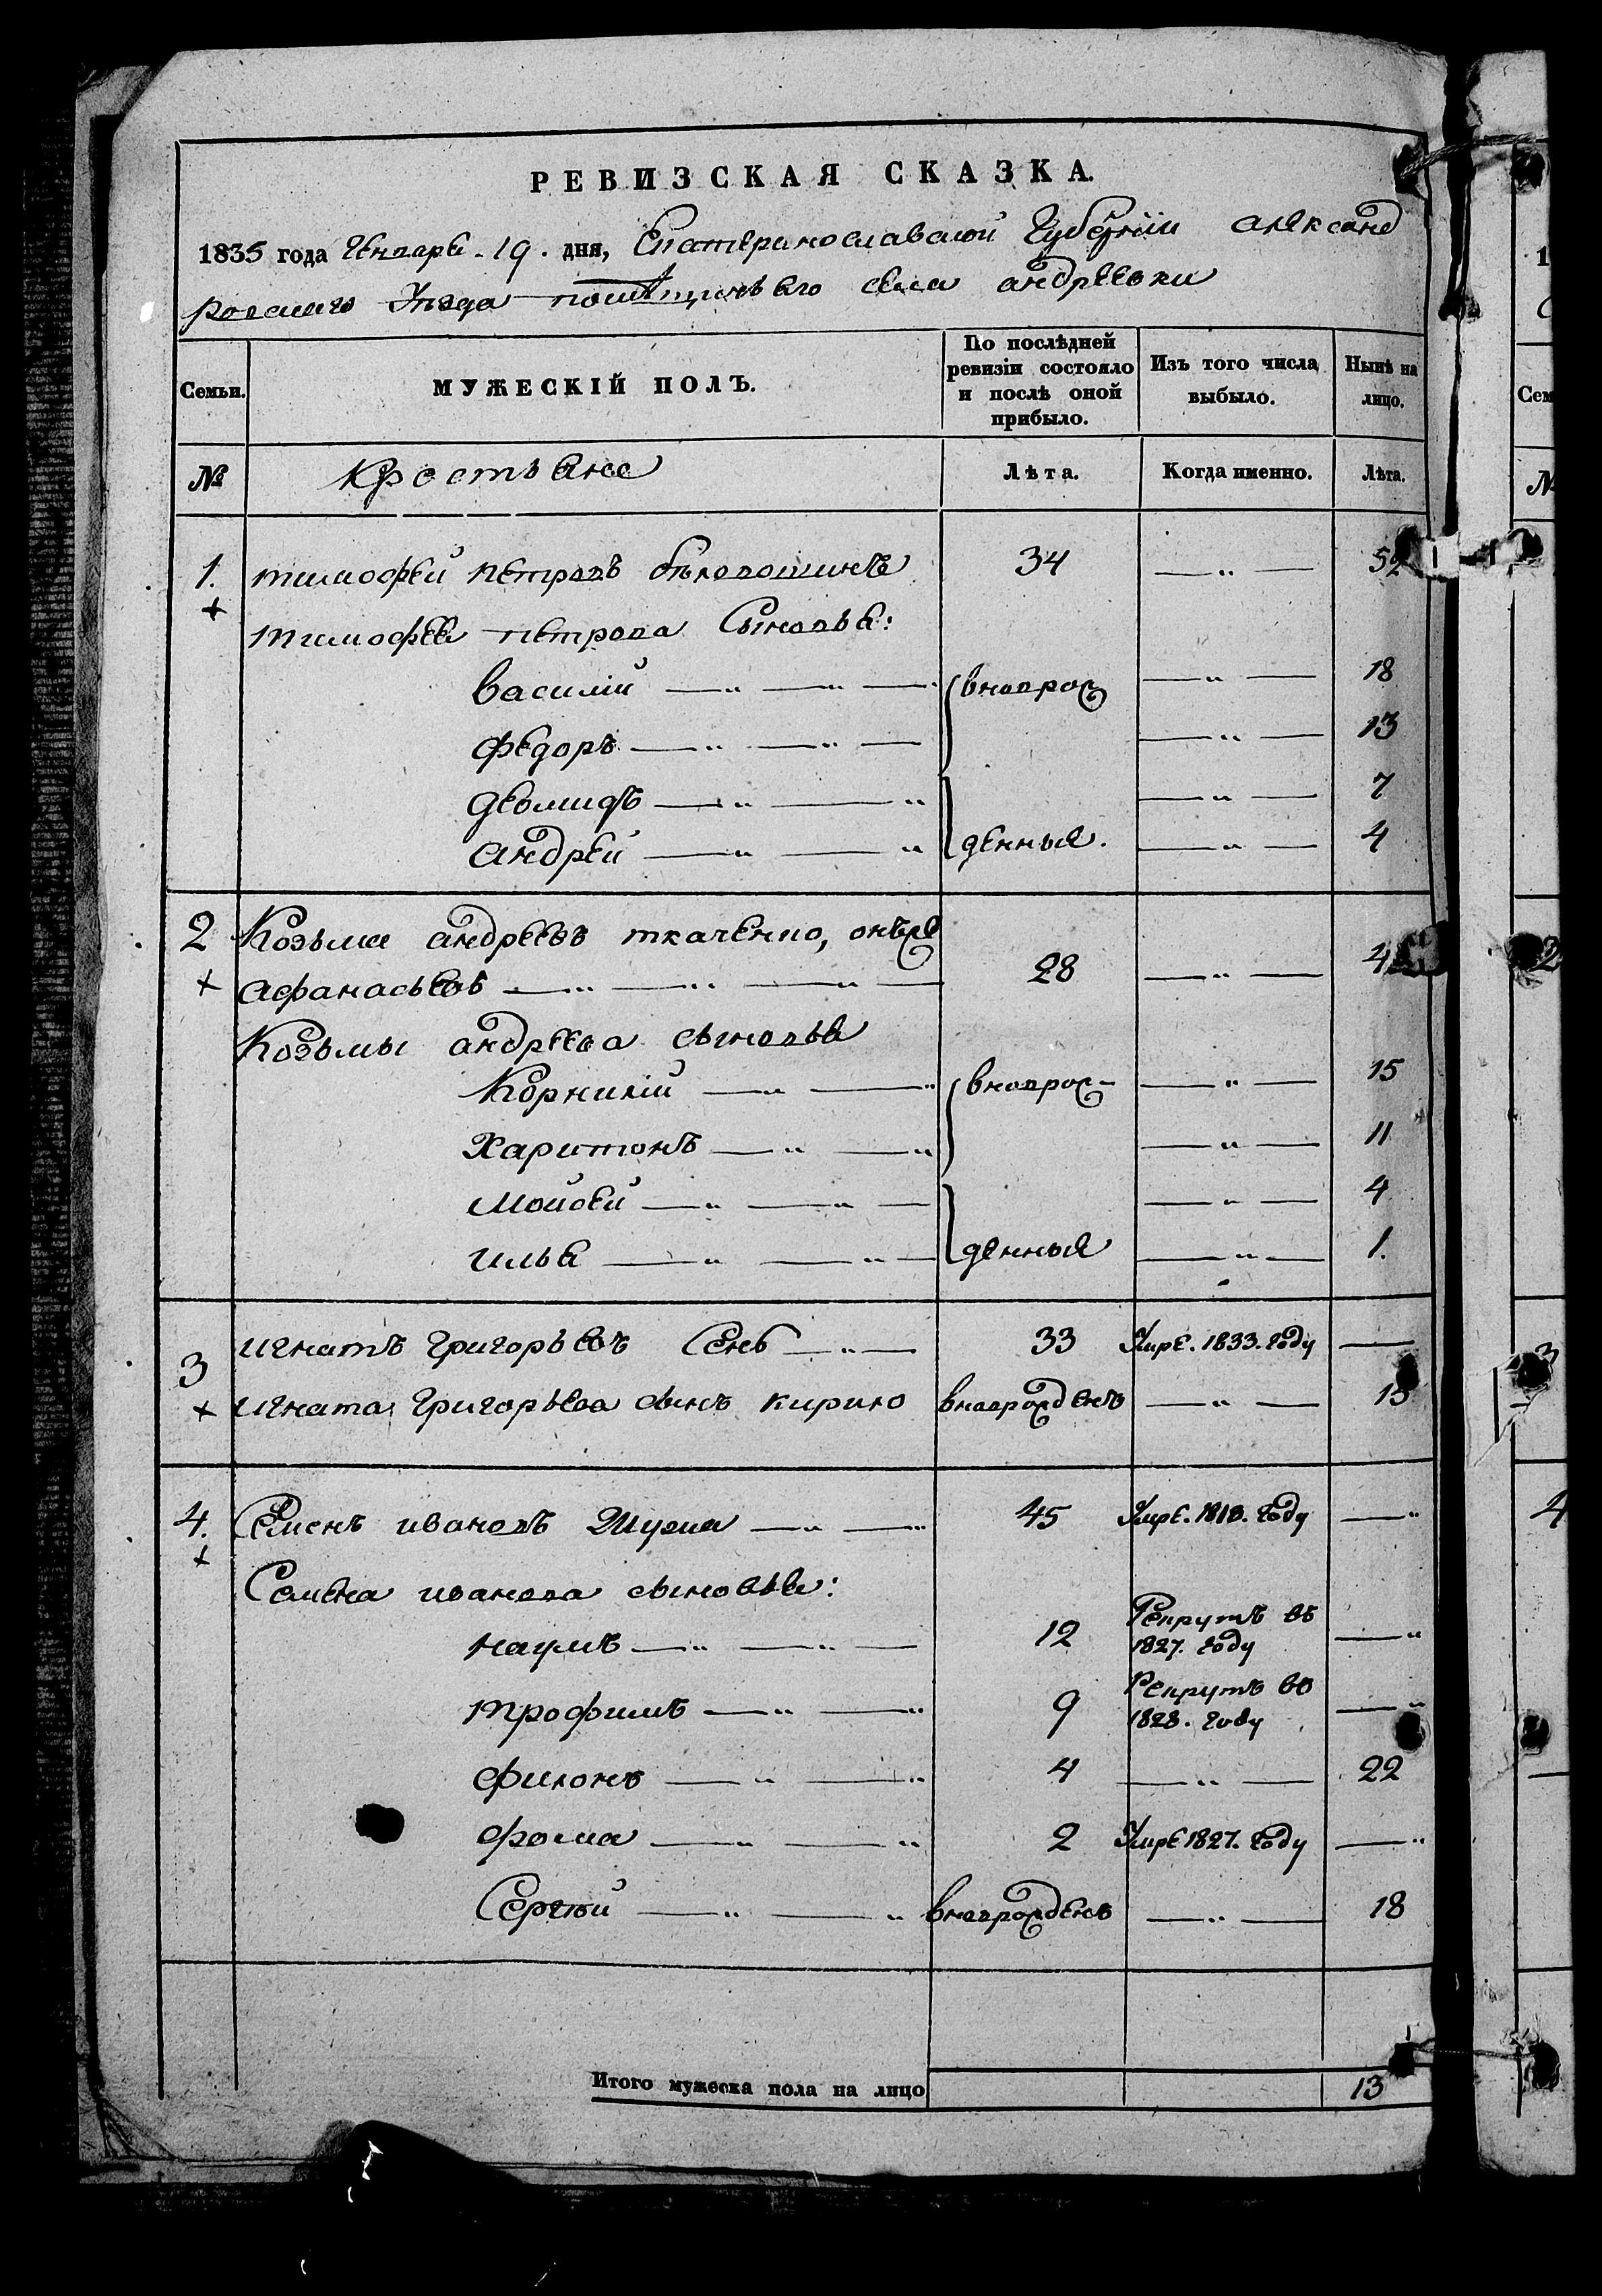 РЕВИЗСКАЯ СКАЗКА.
1835 года Генваря. 19. дня, Екатеринославской Губернии Александ
ровского Уезда села андреевки
Семьи.
МУЖЕСКІЙ ПОЛЪ.
По послѣдней ревизіи состояло и послѣ оной прибыло.
Изъ того числа выбыло.
Нынѣ на лицо.
№ Крестьяне Лѣта. Когда именно. Лѣта.
1. тимофей петровъ 34 — „ — 52
тимофея петрова Сыновья:
василій — „ — „ — вновѣрож — „ — 18
федоръ — „ — „ — — „ — 13
— „ — „ — „ — 7
андрей — „ — „ денныя. — „ — 4
2 Козьма андреевъ ткаченко, онъже
афанасьевъ — „ — „ — „ — 28 — „ —
Козьмы андреева сыновья
Корнилій — „ — „ вновѣрож- — „ — 15
Харитонъ — „ — „ — „ — 11
мойсей — „ — „ — — „ — 4
илья — „ — „ — денныя — „ — 1.
3 игнатъ григорьевъ Сень — „ — 33 Умре. 1833. году —
игната григорьева сынъ кирило вноврожденъ — „ — 15
4. Семенъ ивановъ — „ — „ 45 Умре. 1818. году — „
Семена иванова сыновья:
наумъ — „ — „ — 12 Рекрутъ въ 1827. году — „
трофимъ — „ — „ 9 Рекрутъ въ 1828. году — „
филонъ — „ — „ 4 — „ — 22
фома — „ — „ 2 Умре 1827. году — „
Сергѣй — „ — „ вноврожденъ — „ — 18
Итого мужеска пола на лицо 13